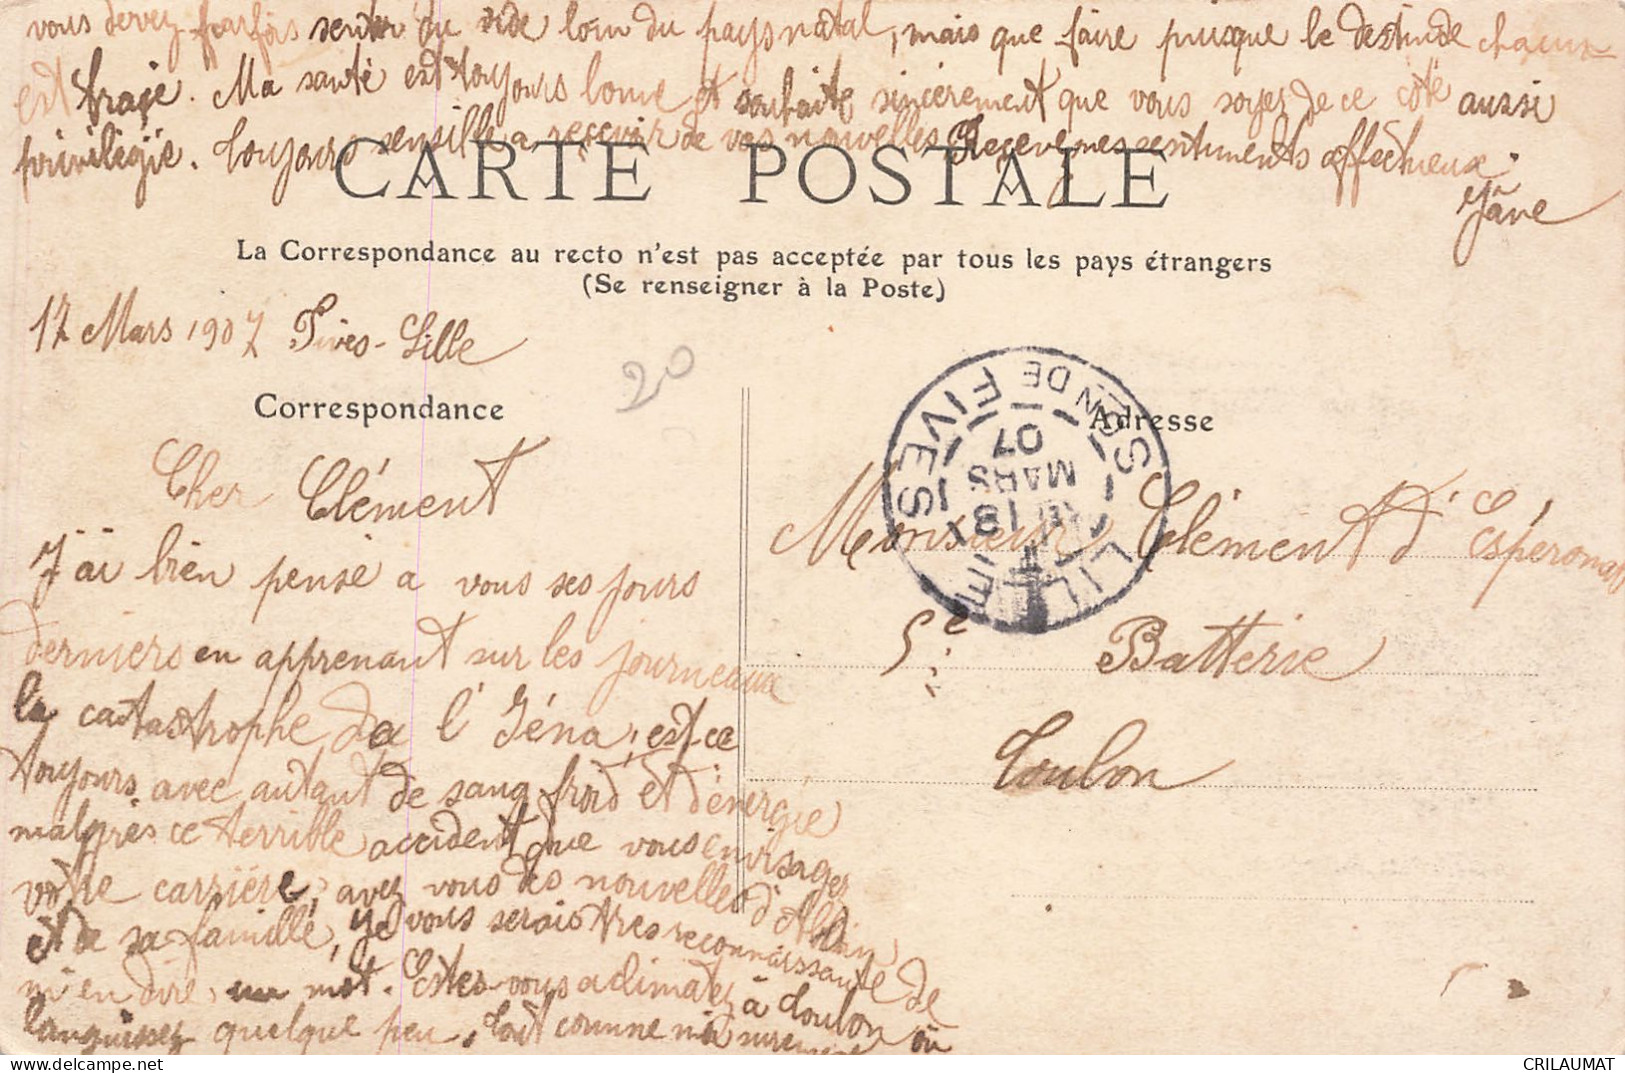 vous devez parfois sentir du vide loin du pays natal, mais que faire puisque le destin de chacun
est tracé. Ma santé est toujours bonne et souhaite sincèrement que vous soyez de ce côté aussi
privilégié. Toujours sensible a reçevoir de vos nouvelles Recevez mes sentiments affectueux.
Jâne
CARTE POSTALE
La Correspondance au recto n'est pas acceptée par tous les pays étrangers
(Se renseigner à la Poste)
17 Mars 1907 Fives-Lille
20
Correspondance
Cher Clément
J'ai bien pensé a vous ses jours
derniers en apprenant sur les journeaux
la catastrophe de l'Iéna; est-ce
toujours avec autant de sang froid et d'énergie
malgrès ce terrible accident que vous envisagez
votre carrière, avez vous des nouvelles d'Albin
et de sa famille, je vous serais très reconnaissante de
m'en dire un mot. Êtes-vous aclimatez à Toulon ou
languissez quelque peu, tout comme moi surement
LILLE
SON DE FIVES
18
MARS
07
Adresse
Monsieur Clément d'Espéronnat
5e Batterie
Toulon
CRILAUMAT